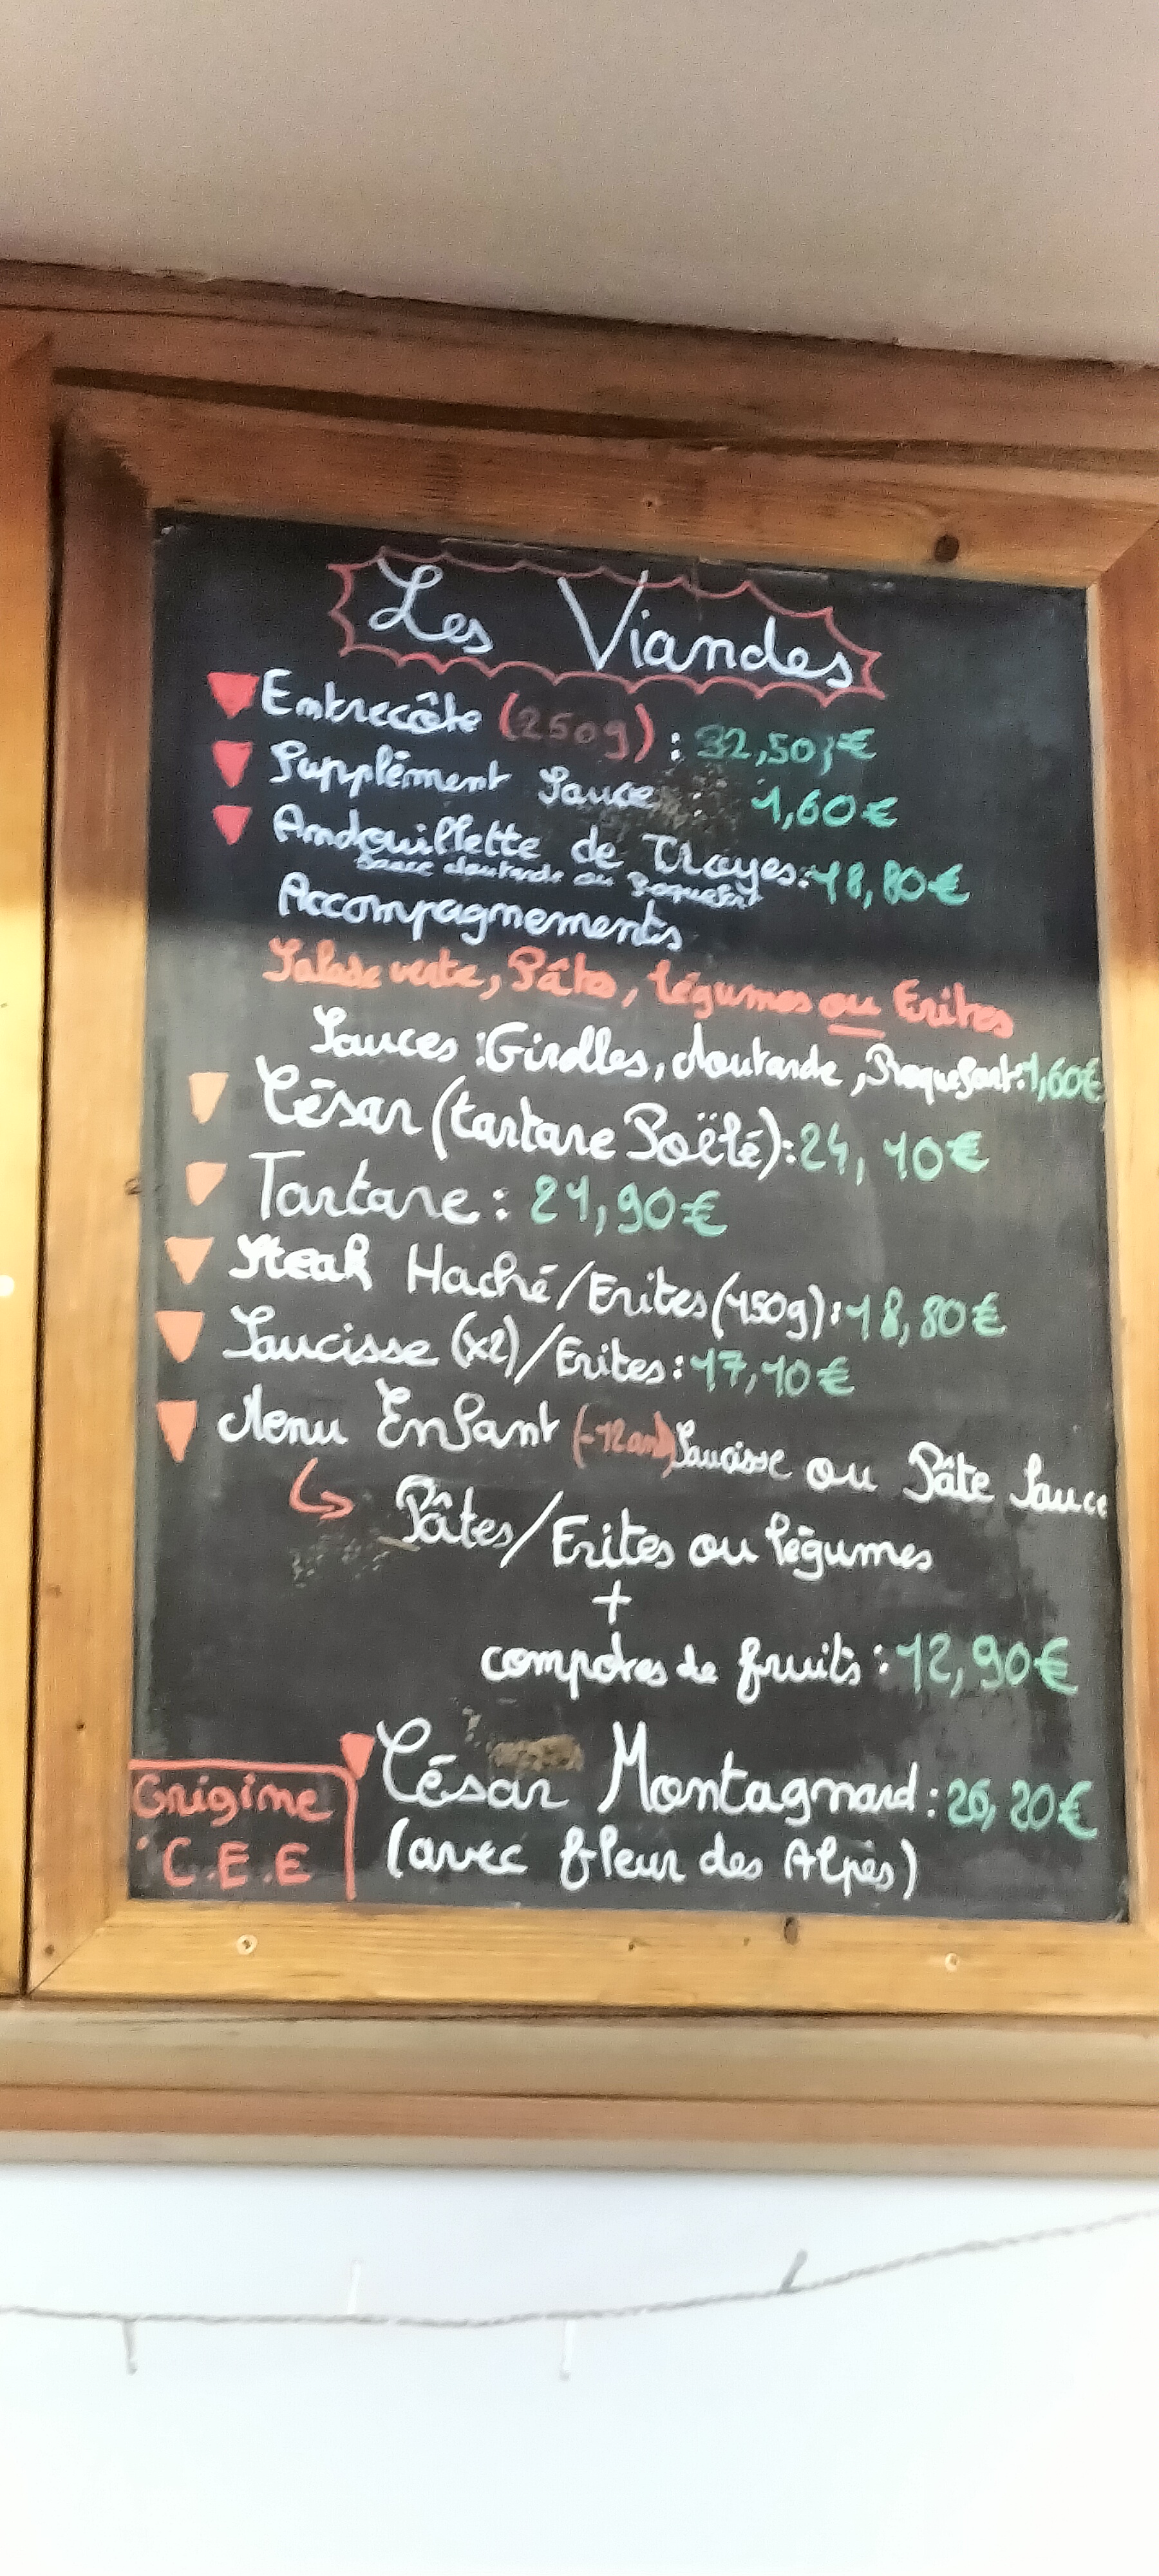 Les Viandes
Entrecôte (250g) : 32,50€
Supplément Sauce : 1,60€
Andouillette de Troyes : 18,80€
Sauce Moutarde ou Roquefort
Accompagnements
Salade verte, Pâtes, légumes ou Frites
Sauces : Girolles, Moutarde, Roquefort : 1,60€
César (tartare Poëlé) : 24,10€
Tartare : 21,90€
Steak Haché/Frites (150g) : 18,80€
Saucisse (x2)/Frites : 17,10€
Menu Enfant (-12ans) Saucisse ou Pâte Sauce
Pâtes/Frites ou légumes
+
compotes de fruits : 12,90€
César Montagnard : 26,20€
(avec fleur des Alpes)
Origine
C.E.E